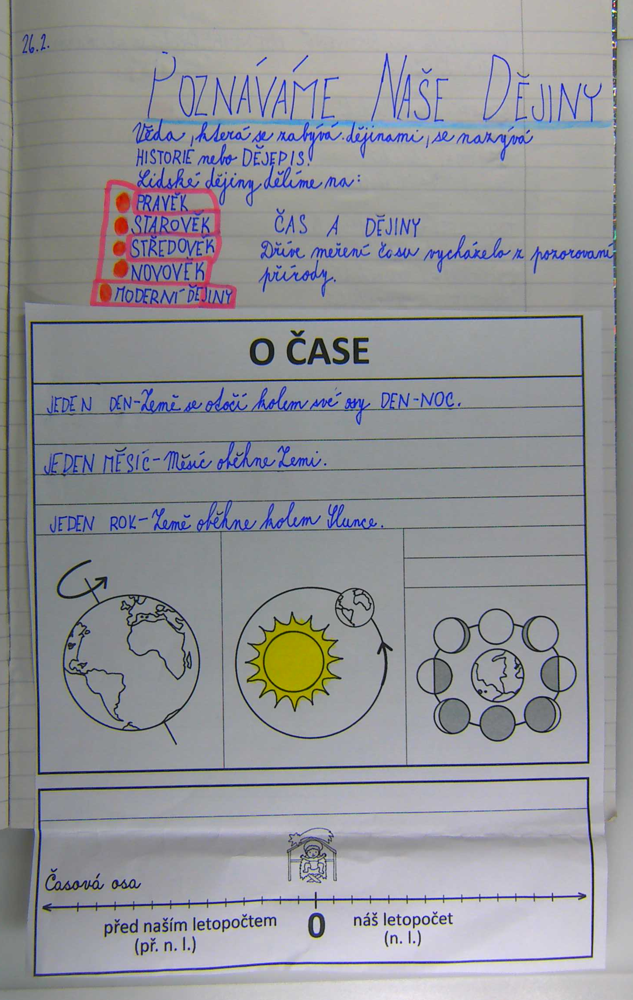 26.2.
POZNÁVÁME NAŠE DĚJINY
Věda, která se zabývá dějinami, se nazývá
HISTORIE nebo DĚJEPIS.
Lidské dějiny dělíme na:
PRAVĚK
STAROVĚK
STŘEDOVĚK
NOVOVĚK
MODERNÍ DĚJINY
ČAS A DĚJINY
Dříve měření času vycházelo z pozorování
přírody.
O ČASE
JEDEN DEN-Země se otočí kolem své osy DEN-NOC.
JEDEN MĚSÍC-Měsíc oběhne Zemi.
JEDEN ROK-Země oběhne kolem Slunce.
Časová osa
před naším letopočtem
(př. n. l.)
0
náš letopočet
(n. l.)